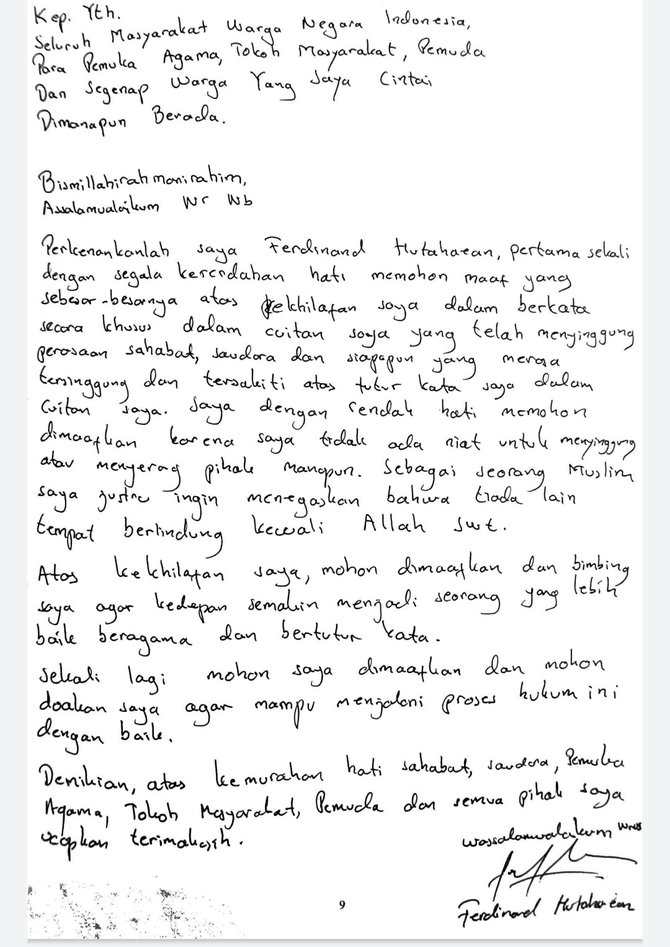 Kep. Yth.
Seluruh Masyarakat Warga Negara Indonesia,
Para Pemuka Agama, Tokoh Masyarakat, Pemuda
Dan Segenap Warga Yang Saya Cintai
Dimanapun Berada.
Bismillahirahmanirahim,
Assalamualaikum Wr Wb
Perkenankanlah saya Ferdinand Hutahaean, pertama sekali
dengan segala kerendahan hati memohon maaf yang
sebesar-besarnya atas kekhilafan saya dalam berkata
secara khusus dalam cuitan saya yang telah menyinggung
perasaan sahabat, saudara dan siapapun yang merasa
tersinggung dan tersakiti atas tutur kata saya dalam
cuitan saya. Saya dengan rendah hati memohon
dimaafkan karena saya tidak ada niat untuk menyinggung
atau menyerag pihak manapun. Sebagai seorang Muslim
saya justru ingin menegaskan bahwa tiada lain
tempat berlindung kecuali Allah swt.
Atas kekhilafan saya, mohon dimaafkan dan bimbing
saya agar kedepan semakin menjadi seorang yang lebih
baik beragama dan bertutur kata.
Sekali lagi mohon saya dimaafkan dan mohon
doakan saya agar mampu menjalani proses hukum ini
dengan baik.
Demikian, atas kemurahan hati sahabat, saudara, Pemuka
Agama, Tokoh Masyarakat, Pemuda dan semua pihak saya
ucapkan terimakasih.
Wassalamualaikum WrWb
Ferdinand Hutahaean
9